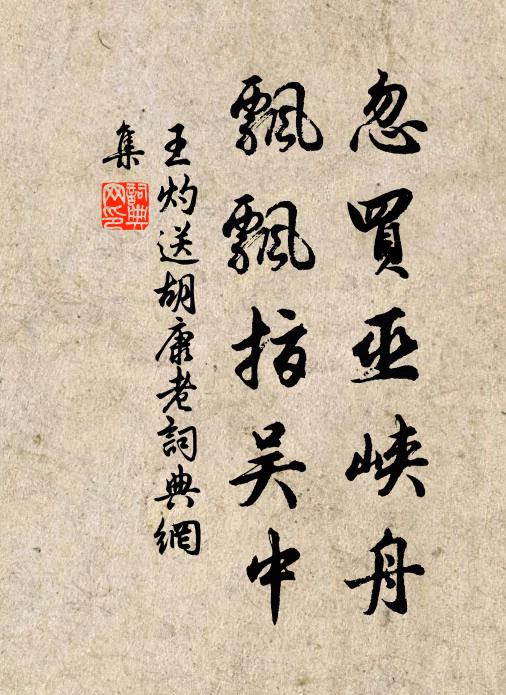 忽買巫峽舟
飄飄指吳中
王灼送胡康老詞典網
集
詞典网印